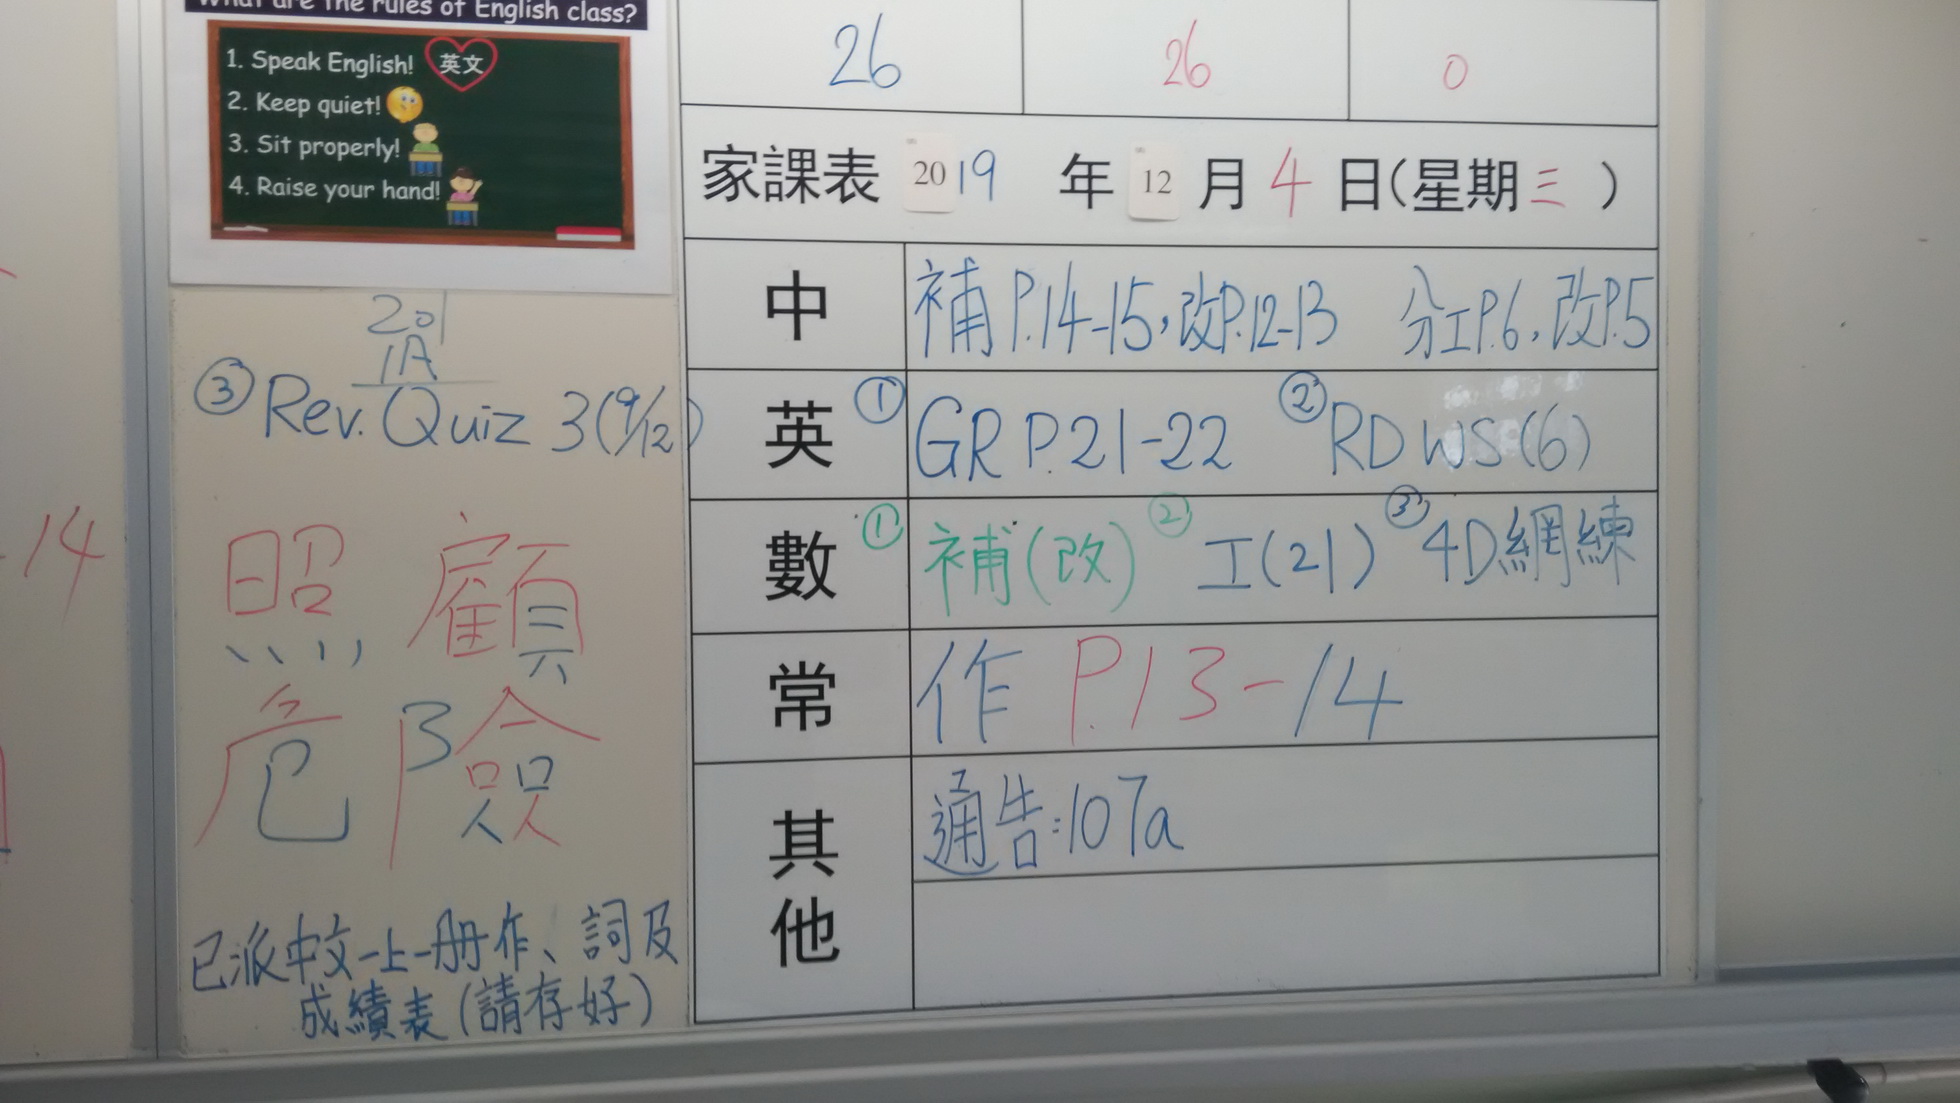 What are the rules of English class?
1. Speak English! 英文
2. Keep quiet!
3. Sit properly!
4. Raise your hand!
201
1A
③ Rev. Quiz 3 (9/12)
照 顧
危 險
已派中文一上一冊作、詞及
成績表(請存好)
26 26 0
家課表 2019 年 12 月 4 日(星期三)
中 補 P.14-15,改P.12-13 分工P.6,改P.5
英 ① GR P.21-22 ② RD WS(6)
數 ① 補(改) ② 工(21) ③ 4D網練
常 作 P.13-14
其他 通告:107a
-14